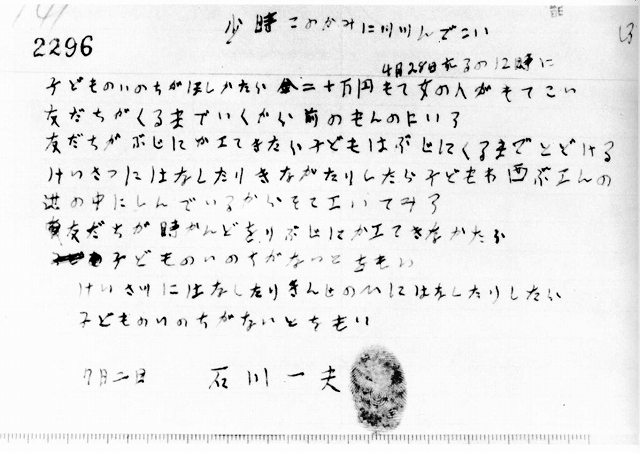 2296
少時このかみに川川んでこい
4月28日よるの12時に
子どものいのちがほしかたら金二十万円もて女の人がもてこい
友だちがくるまでいくから前のもんのにいろ
友だちがぶじにかエてきたら子どもはぶじにくるまでとどける
けいさつにはなしたりきながたりしたら子どもわ西ぶエんの
池の中にしんでいるからそてエいてみろ
友だちが時かんどをりぶじにかエてきなかたら
子どものいのちがないとをもい
けいさツにはなしたりきんじの人にはなしたりしたら
子どものいのちがないとをもい
7月二日 石川一夫